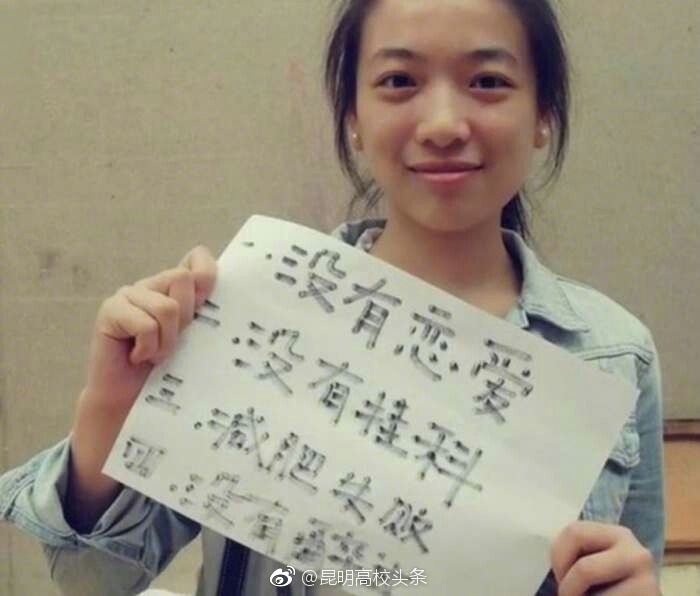 一.没有恋爱
二.没有挂科
三.减肥失败
四.没有
@昆明高校头条